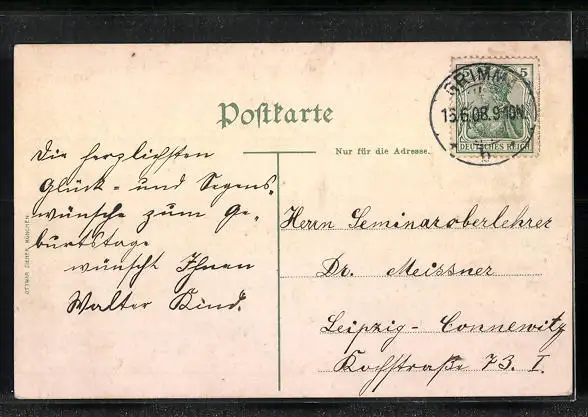 Postkarte
Nur für die Adresse.
GRIMMA
13.6.08.9-10N.
b
5
DEUTSCHES REICH
Die herzlichsten
Glück- und Segens-
wünsche zum Ge-
burtstage
wünscht Ihnen
Walter Kind.
Herrn Seminaroberlehrer
Dr. Meissner
Leipzig-Connewitz
Kochstraße 73. I.
OTTMAR ZIEHER, MÜNCHEN